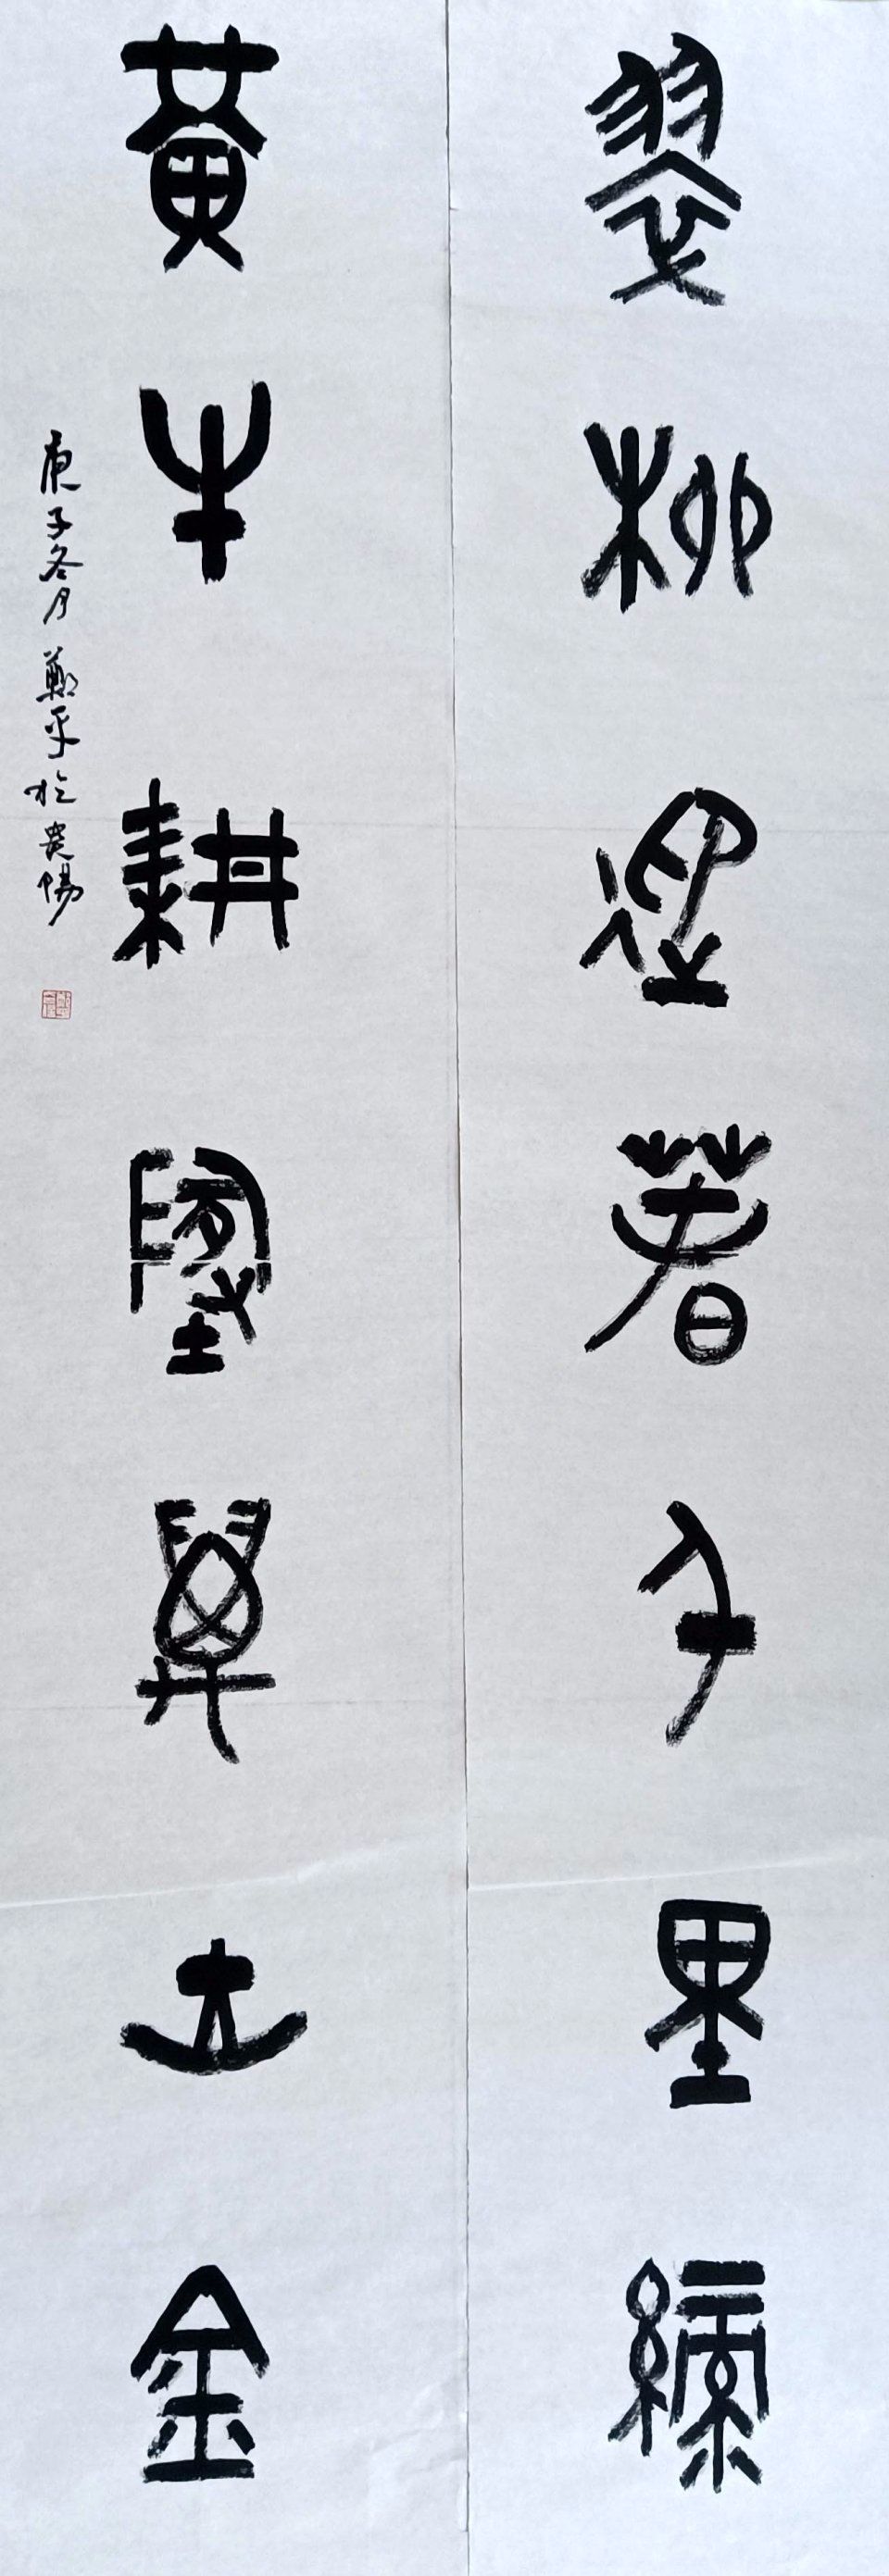 翠柳迎春千里綠
黃牛耕地萬山金
庚子冬月 鄭平於貴陽